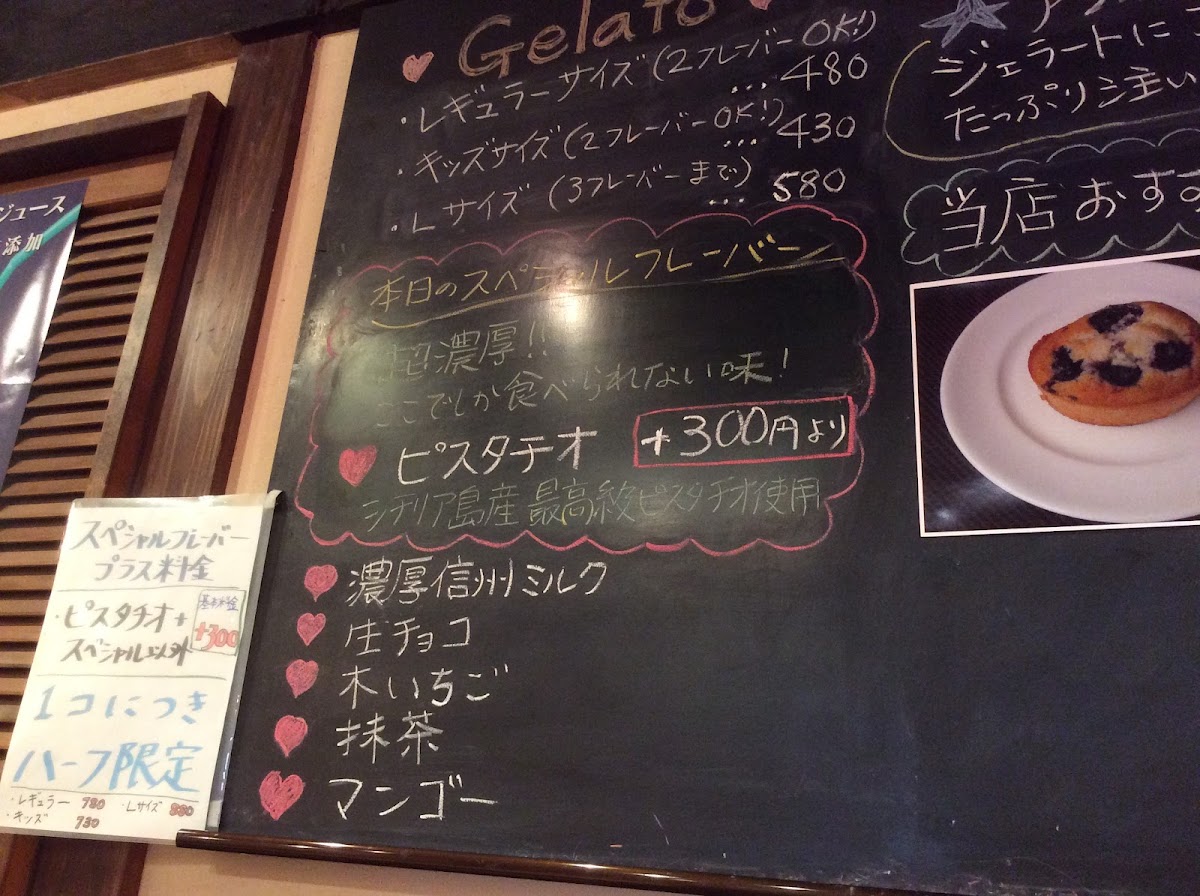 Gelato
・レギュラーサイズ(2フレーバーOK!)
...480
・キッズサイズ(2フレーバーOK!)
...430
・Lサイズ(3フレーバーまで)
...580
本日のスペシャルフレーバー
超濃厚!!
ここでしか食べられない味!
ピスタチオ +300円より
シチリア島産 最高級ピスタチオ使用
濃厚信州ミルク
生チョコ
木いちご
抹茶
マンゴー
ジェラートに
たっぷり注い
当店おすす
ジュース
添加
スペシャルフレーバー
プラス料金
・ピスタチオ+
スペシャル以外
基本料金
+300
1コにつき
ハーフ限定
・レギュラー 780 ・Lサイズ 880
・キッズ 730